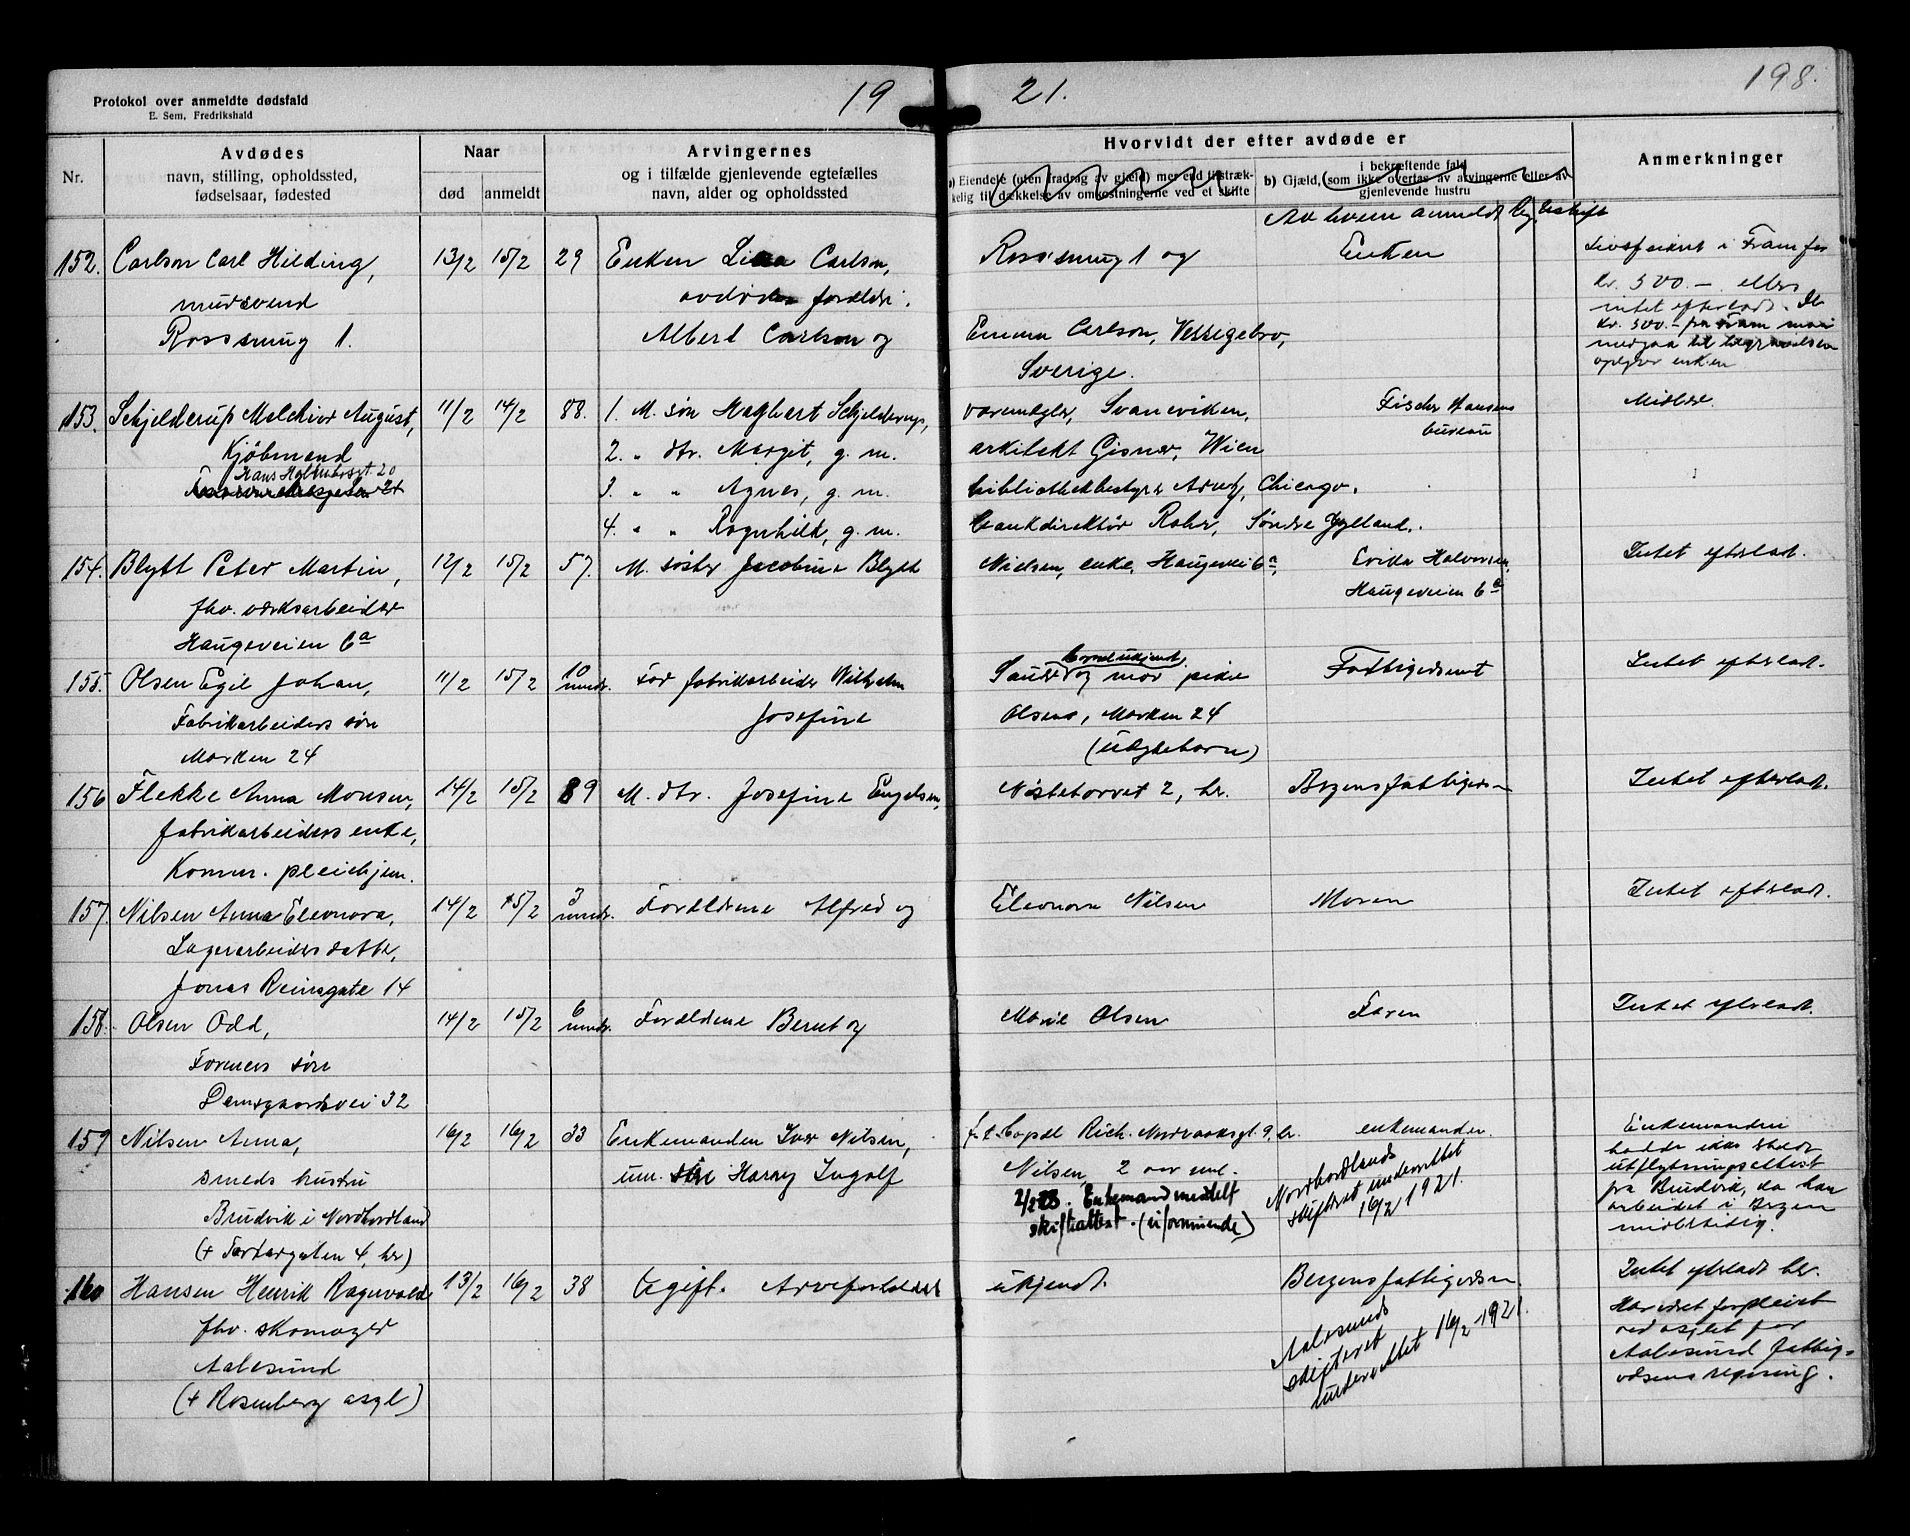 Protokol over anmeldte dødsfald
E. Sem, Fredrikshald
19 21.
198.
Nr.
Avdødes
navn, stilling, opholdssted,
fødselsaar, fødested
Naar
død anmeldt
Arvingernes
og i tilfælde gjenlevende egtefælles
navn, alder og opholdssted
Hvorvidt der efter avdøde er
a) Eiendele (uten fradrag av gjæld) mer end tilstræk-
kelig til dækkelse av omkostningerne ved et skifte
i bekræftende fald
b) Gjæld, (som ikke overtas av arvingerne eller av
gjenlevende hustru
Av hvem anmeldt
Anmerkninger
152. Carlson Carl Hilding, 13/2 15/2 29 Enken Lina Carlson, Rossesmug 1 og Enken Livsforsikret i Fram for
kr. 500.- ellers
mursvend avdødes forældre
intet efterladt. De
Rossesmug 1. Albert Carlson og Emma Carlson, Sverige.
kr. 500.- fra Fram
medgaa til begravelsen
opgir enken
153. Schjelderup Melchior August, 11/2 14/2 88. 1. M. søn Hagbart Schjelderup, varemægler, Svaneviken, Fischer Hansens bureau Midler.
Kjøbmand 2. " dtr. Margit, g. m. arkitekt Gisner, Wien
Hans Holmboesgt. 20
3. " " Agnes, g. m. bibliothekbestyrer Chicago.
4. " " Ragnhild, g. m. bankdirektør Rohr, Søndre Jylland.
154. Blytt Peter Martin, 12/2 15/2 57. M. søster Jacobine Blytt Nielsen, enke, Haugevei 6a, Halvorsen, Intet efterladt.
Haugeveien 6a
fhv. verksarbeider
Haugeveien 6a
155. Olsen Egil Johan, 11/2 15/2 10 mndr. Far fabrikarbeider Wilhelm og mor pike Fattigersmt Intet efterladt.
Fabrikarbeiders søn Josefine Olsens, Marken 24
Marken 24 (uægtebarn)
156 Flekke Anna Monsen, 14/2 15/2 89 M. dtr. Josefine Engelsen, Nøstetorvet 2, hr. Bergens fattigvæsen Intet efterladt.
fabrikarbeiders enke,
Komm. pleiehjem.
157. Nilsen Anna Eleonora, 14/2 15/2 3 mndr. Forældrene Alfred og Eleonora Nilsen Moren Intet efterladt.
Lagerarbeiders datter,
Jonas Reinsgate 14
158. Olsen Odd, 14/2 15/2 6 mndr. Forældrene Bernt og Marie Olsen Faren Intet efterladt.
Formers søn
Damsgaardsvei 32
159 Nilsen Anna, 16/2 16/2 33 Enkemanden Iver Nilsen, Rich. Nordraaksgt. 9, hr. enkemanden. Enkemanden
smeds hustru um. søn Harry Ingolf Nilsen, 2 aar uml. hadde ikke
Brudvik i Nordhordland Enkemand meddelt utflytningsattest
(+ Fortargaten 4, hr) skifteattest. (uformuende) fra Brudvik, da han
Nordhordlands arbeidet i Bergen
skifteret underrettet midlertidig.
16/2 1921.
160 Hansen Henrik Ragnvald 13/2 16/2 38 Ugift. Arveforholdet ukjendt. Bergens fattigvæsen Intet efterladt her.
fhv. skomager Har været forpleiet
Aalesund ved asylet for
(+ Rosenberg asyl) Aalesund fattig-
væsens regning.
Aalesunds
skifteret
underrettet 16/2 1921.